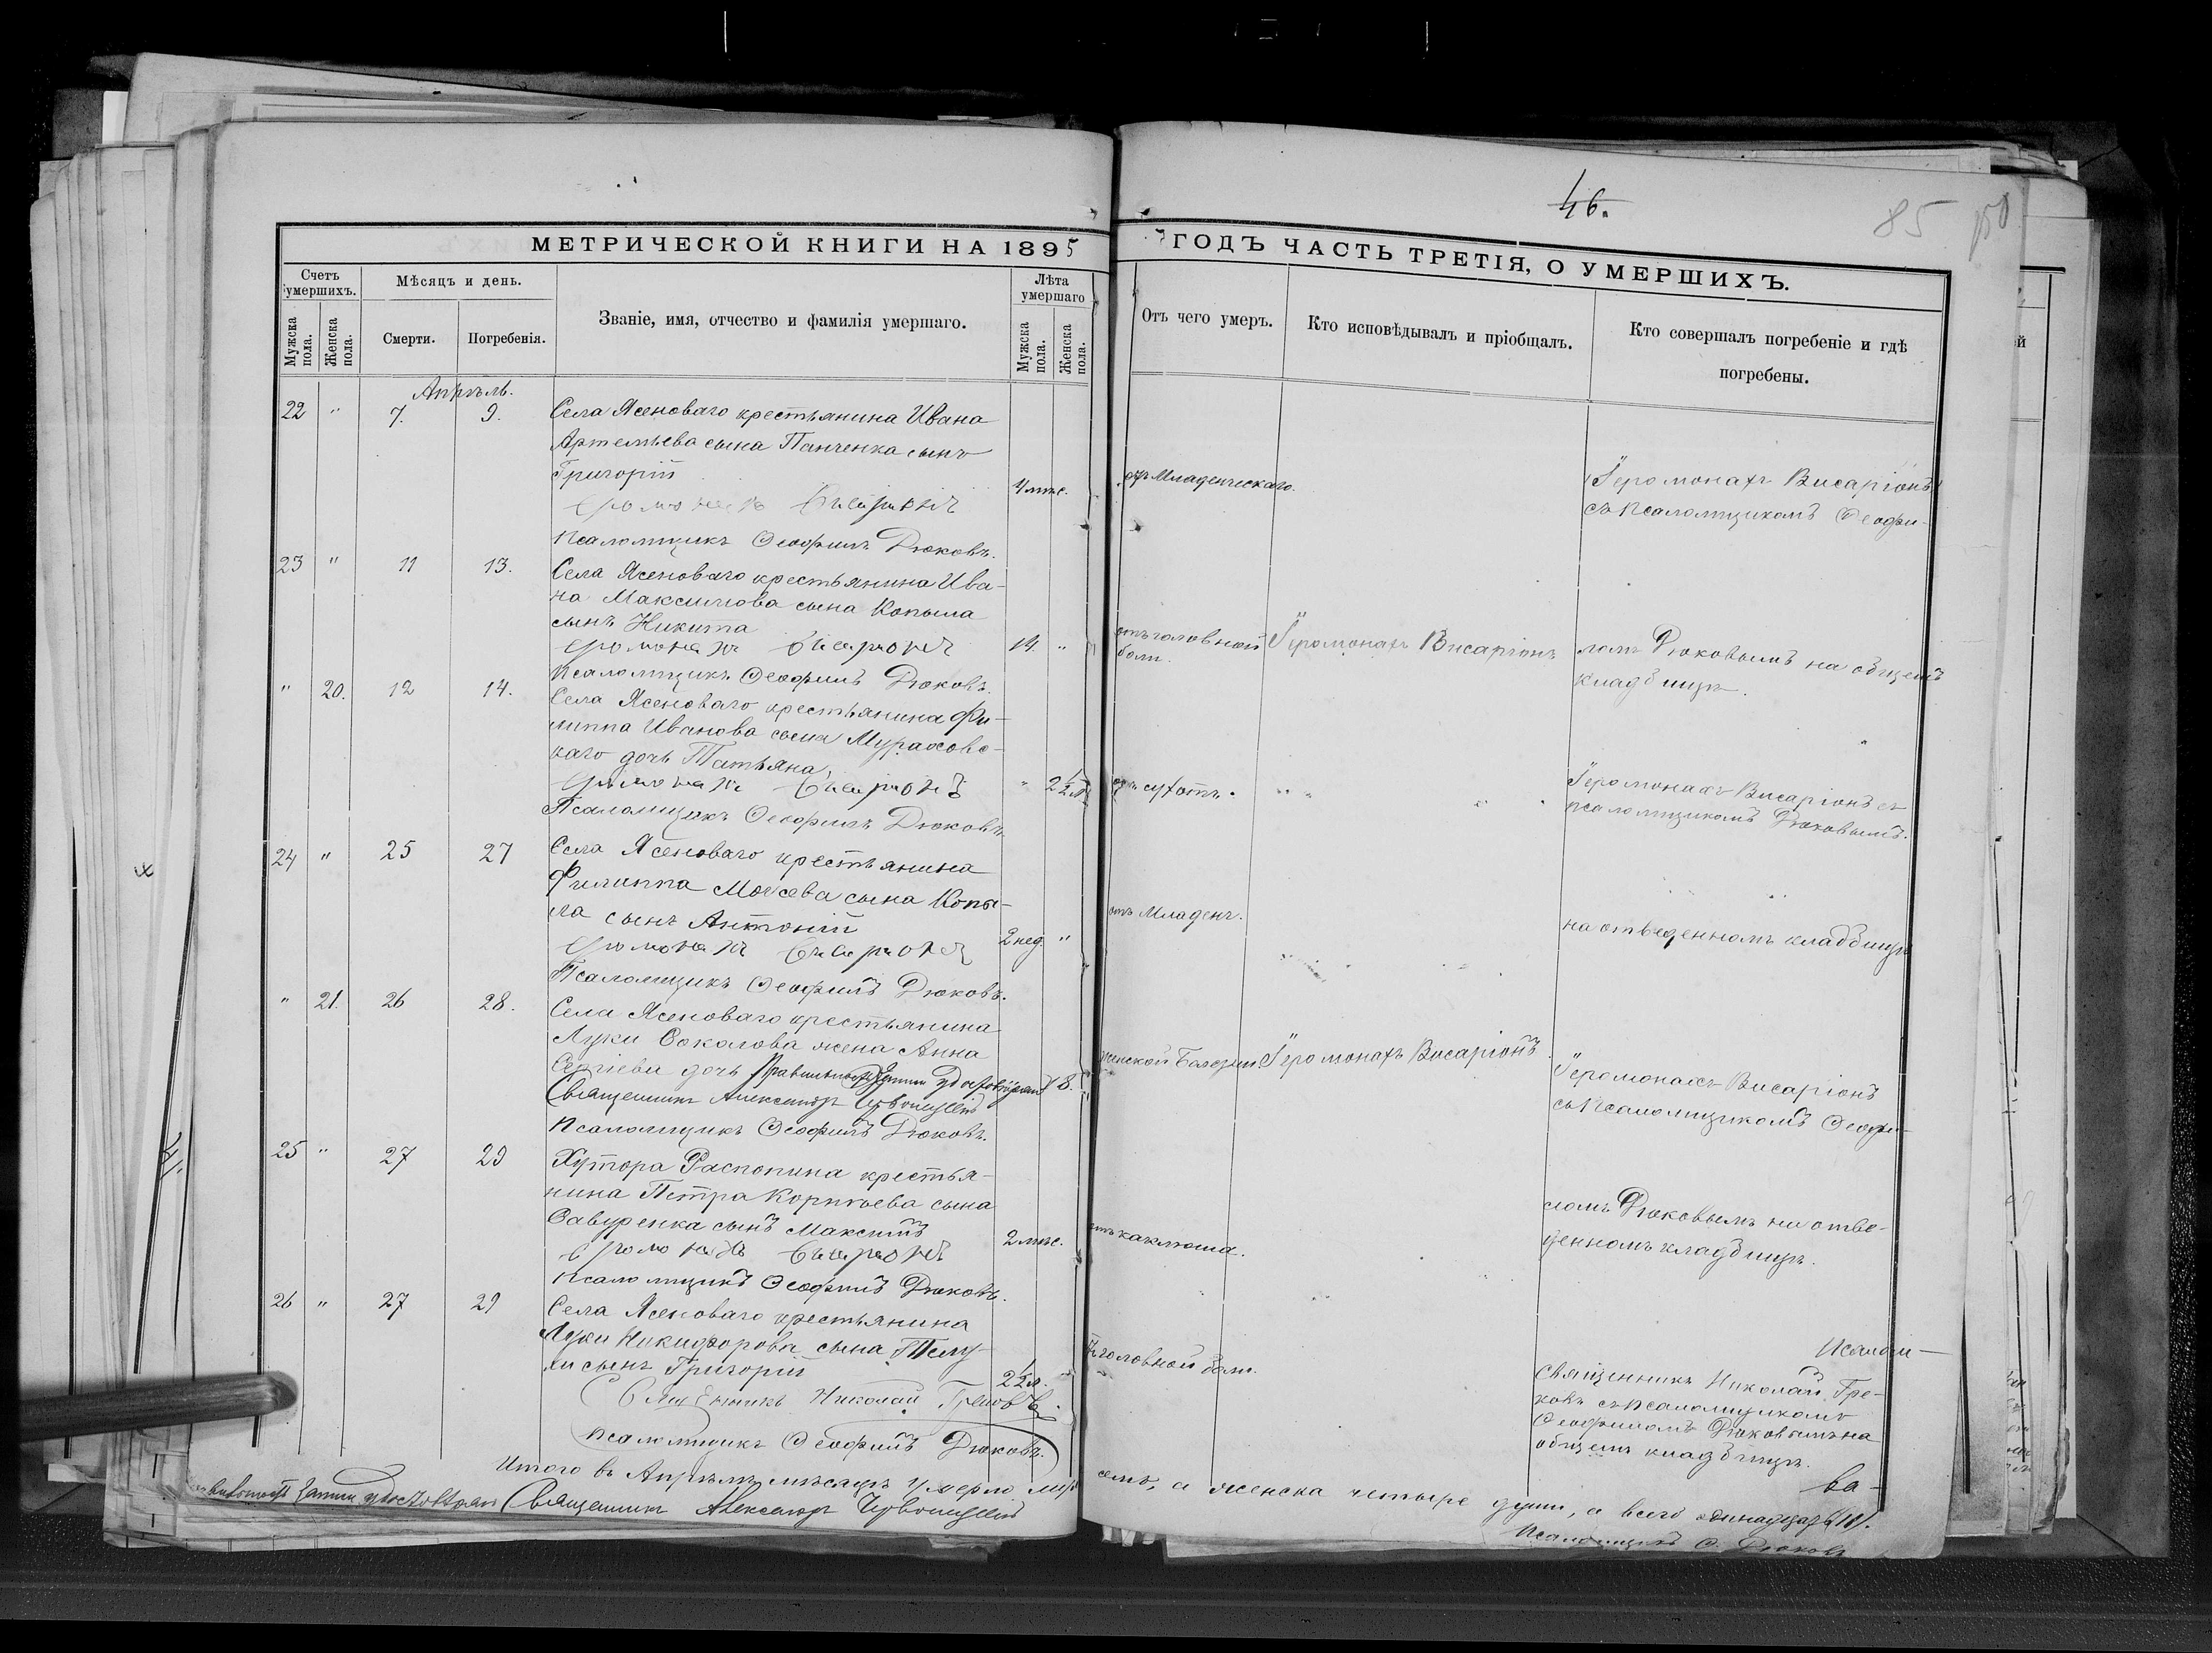 46.
85
МЕТРИЧЕСКОЙ КНИГИ НА 1895
ГОДЪ ЧАСТЬ ТРЕТІЯ, О УМЕРШИХЪ.
Счетъ умершихъ.
Мѣсяцъ и день.
Званіе, имя, отчество и фамилія умершаго.
Лѣта умершаго
Мужска пола.
Женска пола.
Смерти.
Погребенія.
Мужска пола.
Женска пола.
Отъ чего умеръ.
Кто исповѣдывалъ и пріобщалъ.
Кто совершалъ погребеніе и гдѣ
погребены.
Апрѣль.
22 " 7. 9. Села Ясеноваго крестьянина Ивана
Артемьева сына Панченка сынъ
Григорій
4 мѣс. отъ Младенческаго. Іеромонахъ Висаріонъ
съ псаломщикомъ Ѳеофи-
Іеромонахъ Висаріонъ
Псаломщикъ Ѳеофилъ Дюковъ.
23 " 11 13. Села Ясеноваго крестьянина Ива-
на Максимова сына Копыла
сынъ Никита
Іеромонахъ Висаріонъ 14. " отъ головной боли. Іеромонахъ Висаріонъ ломъ Дюковымъ на общемъ
кладбищѣ.
Псаломщикъ Ѳеофилъ Дюковъ.
" 20. 12 14. Села Ясеноваго крестьянина Фи-
липпа Иванова сына Мураховс-
каго дочь Татьяна
Іеромонахъ Висаріонъ " 2½ л. отъ сухотъ. " " Іеромонахъ Висаріонъ съ
псаломщикомъ Дюковымъ.
Псаломщикъ Ѳеофилъ Дюковъ.
24 " 25 27 Села Ясеноваго крестьянина
Филиппа Моисева сына Копы-
ла сынъ Антоній
2 нед. " отъ Младенч. на отведенномъ кладбищѣ
Іеромонахъ Висаріонъ
Псаломщикъ Ѳеофилъ Дюковъ.
" 21. 26 28. Села Ясеноваго крестьянина
Луки Соколова жена Анна
Сергіева дочь Правильность записи удостовѣряю 8.
женской болезни Іеромонахъ Висаріонъ Іеромонахъ Висаріонъ
съ псаломщикомъ Ѳеофи-
Священникъ Александръ
Псаломщикъ Ѳеофилъ Дюковъ.
25 " 27 29 Хутора Распопина крестья-
нина Петра Корнѣева сына
Савуренка сынъ Максимъ
2 мѣс. отъ каклюша. ломъ Дюковымъ на отве-
денномъ кладбищѣ.
Іеромонахъ Висаріонъ
Псаломщикъ Ѳеофилъ Дюковъ.
26 " 27 29 Села Ясеноваго крестьянина
Луки Никифорова сына Телу-
ли сынъ Григорій
2½ л. головной боли.
Священникъ Николай Гре-
ковъ съ псаломщикомъ
Ѳеофиломъ Дюковымъ на
общемъ кладбищѣ.
Священникъ Николай Грековъ
Псаломщикъ Ѳеофилъ Дюковъ.
Итого въ Апрѣлѣ мѣсяцѣ умерло муж.
семь, а женска четыре души, а всего одинадцать (11).
записи удостовѣряю Священникъ Александръ
Псаломщикъ Ѳ. Дюковъ